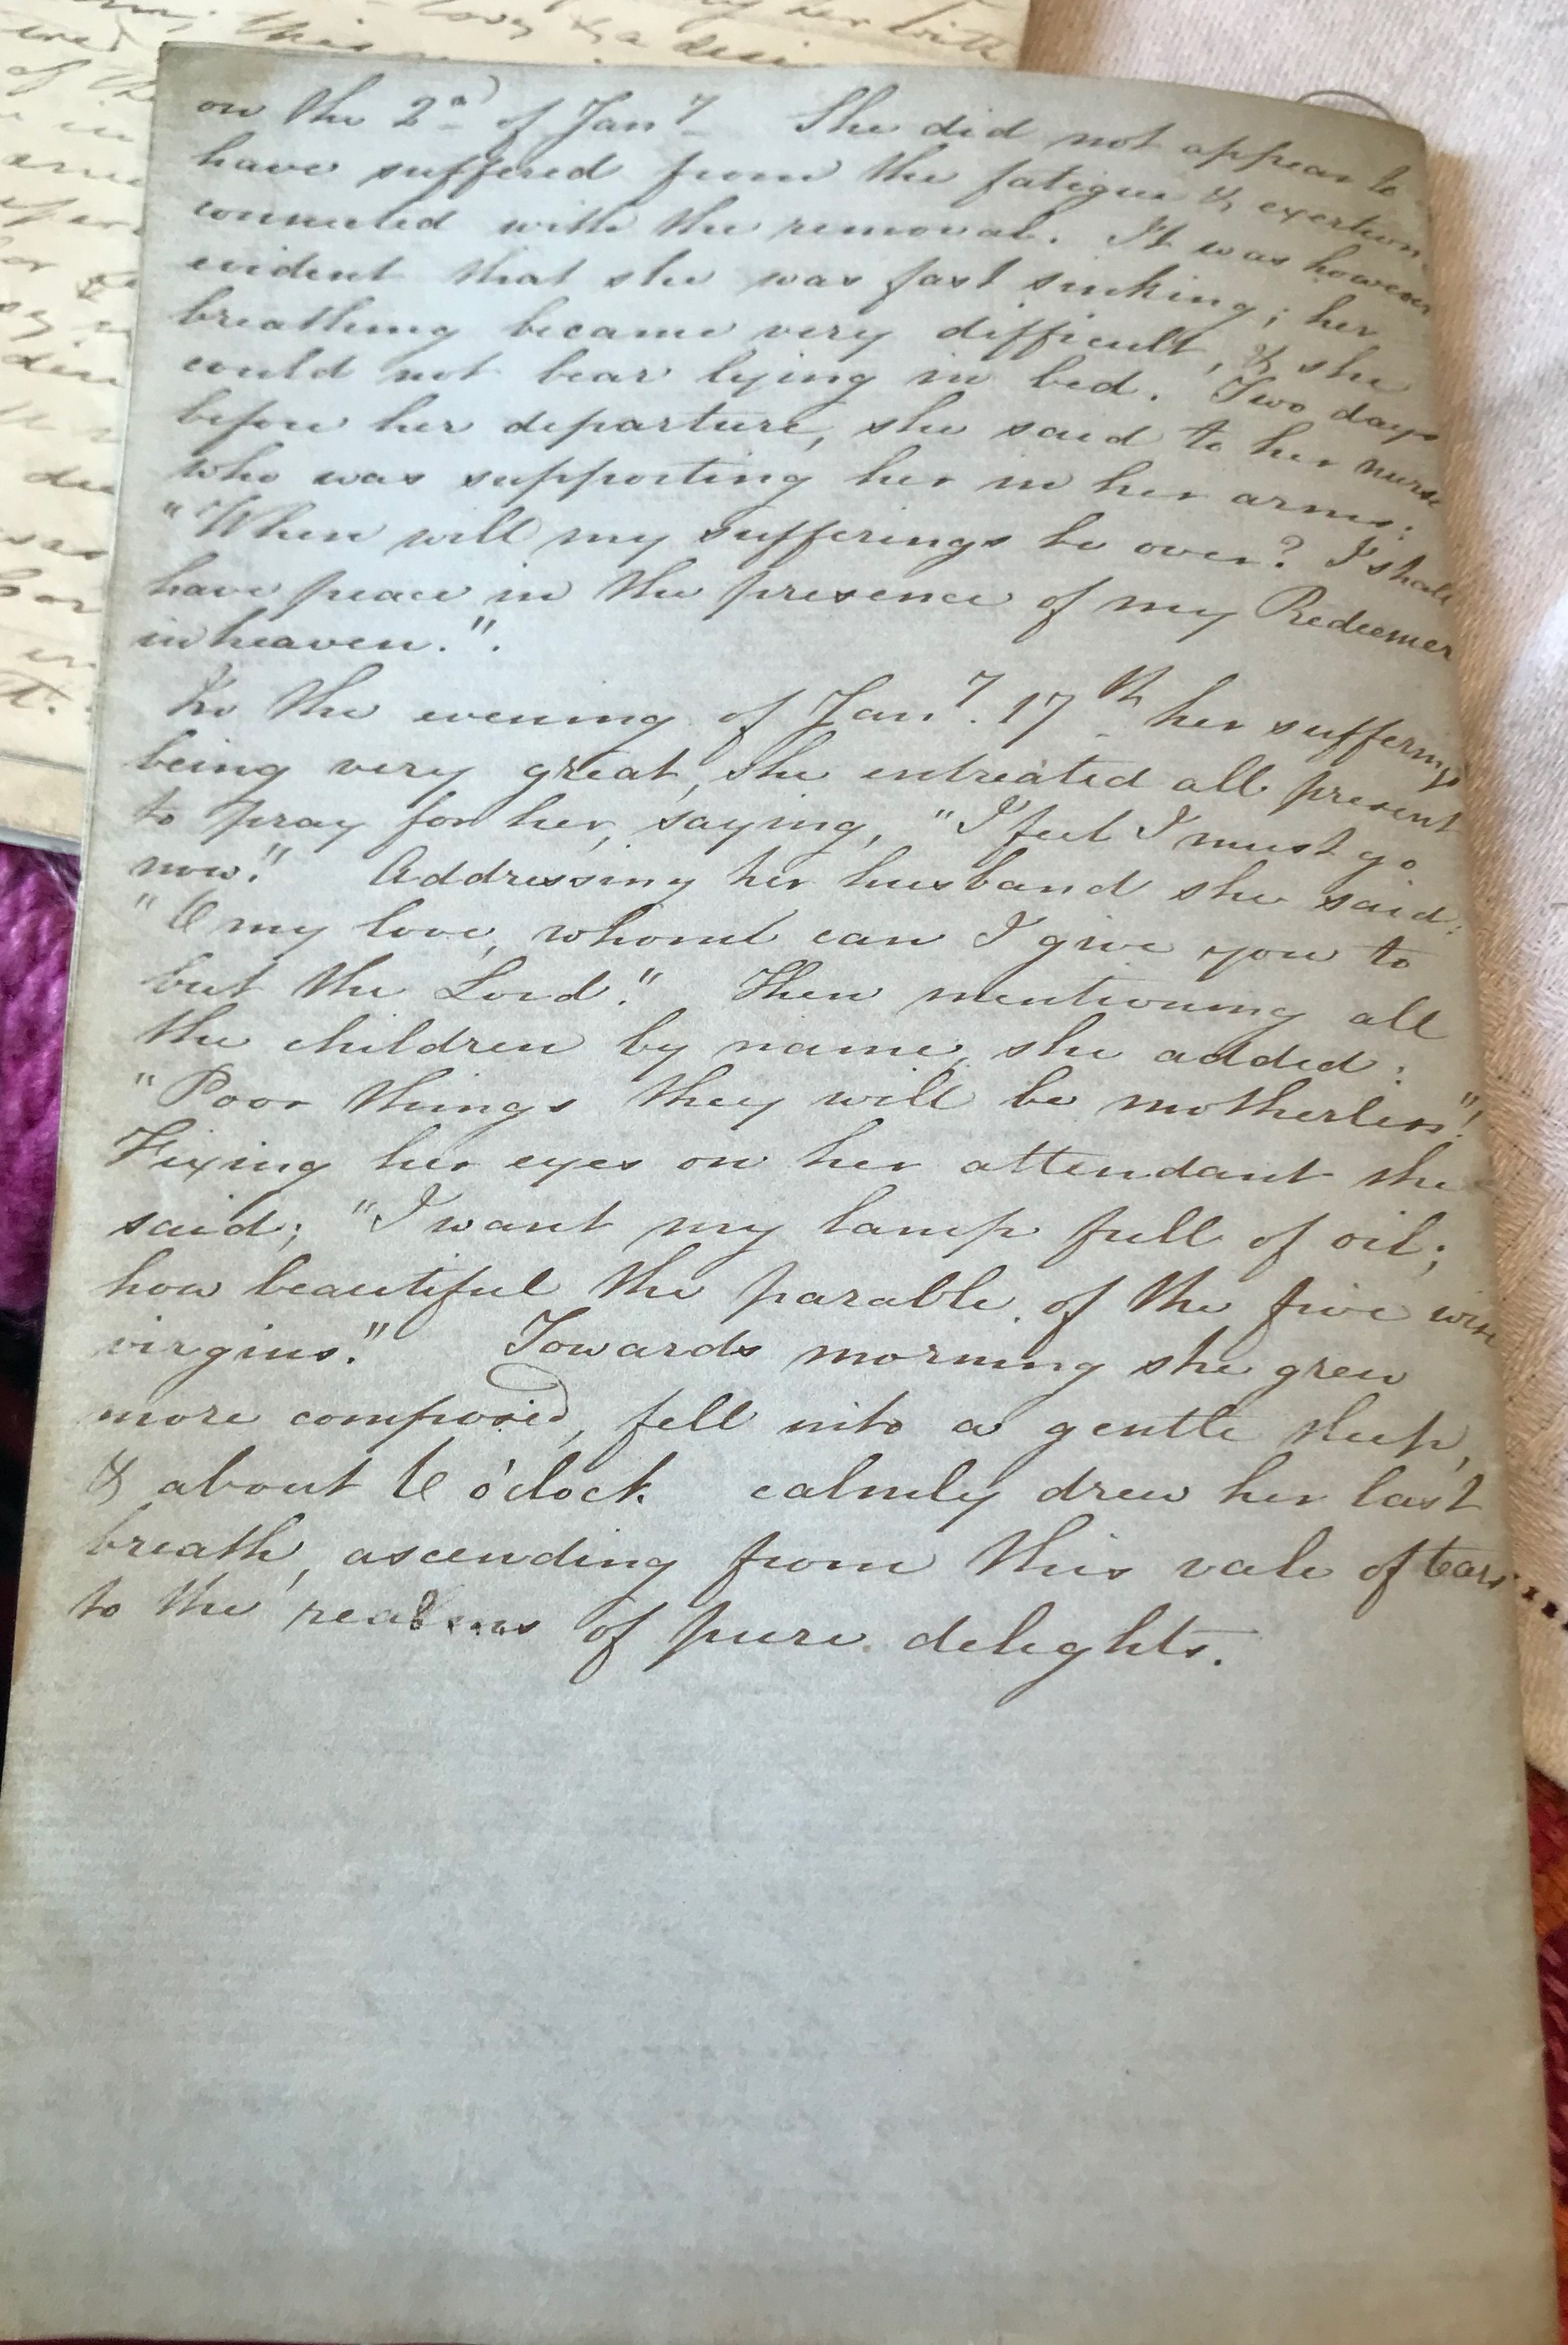 on the 2nd of Jany She did not appear to
have suffered from the fatigue & exertion
connected with the removal. It was however
evident that she was fast sinking; her
breathing became very difficult, & she
could not bear lying in bed. Two days
before her departure, she said to her nurse
who was supporting her in her arms:
"When will my sufferings be over? I shall
have peace in the presence of my Redeemer
in heaven.".
In the evening of Jany. 17th her sufferings
being very great, she entreated all present
to pray for her, saying, "I feel I must go
now." Addressing her husband she said:
"O my love, whom can I give you to
but the Lord." Then mentioning all
the children by name, she added:
"Poor things they will be motherless"!
Fixing her eyes on her attendant she
said; "I want my lamp full of oil;
how beautiful the parable of the five wise
virgins." Towards morning she grew
more composed, fell into a gentle sleep,
& about 6 o'clock calmly drew her last
breath, ascending from this vale of tears
to the realms of pure delights.